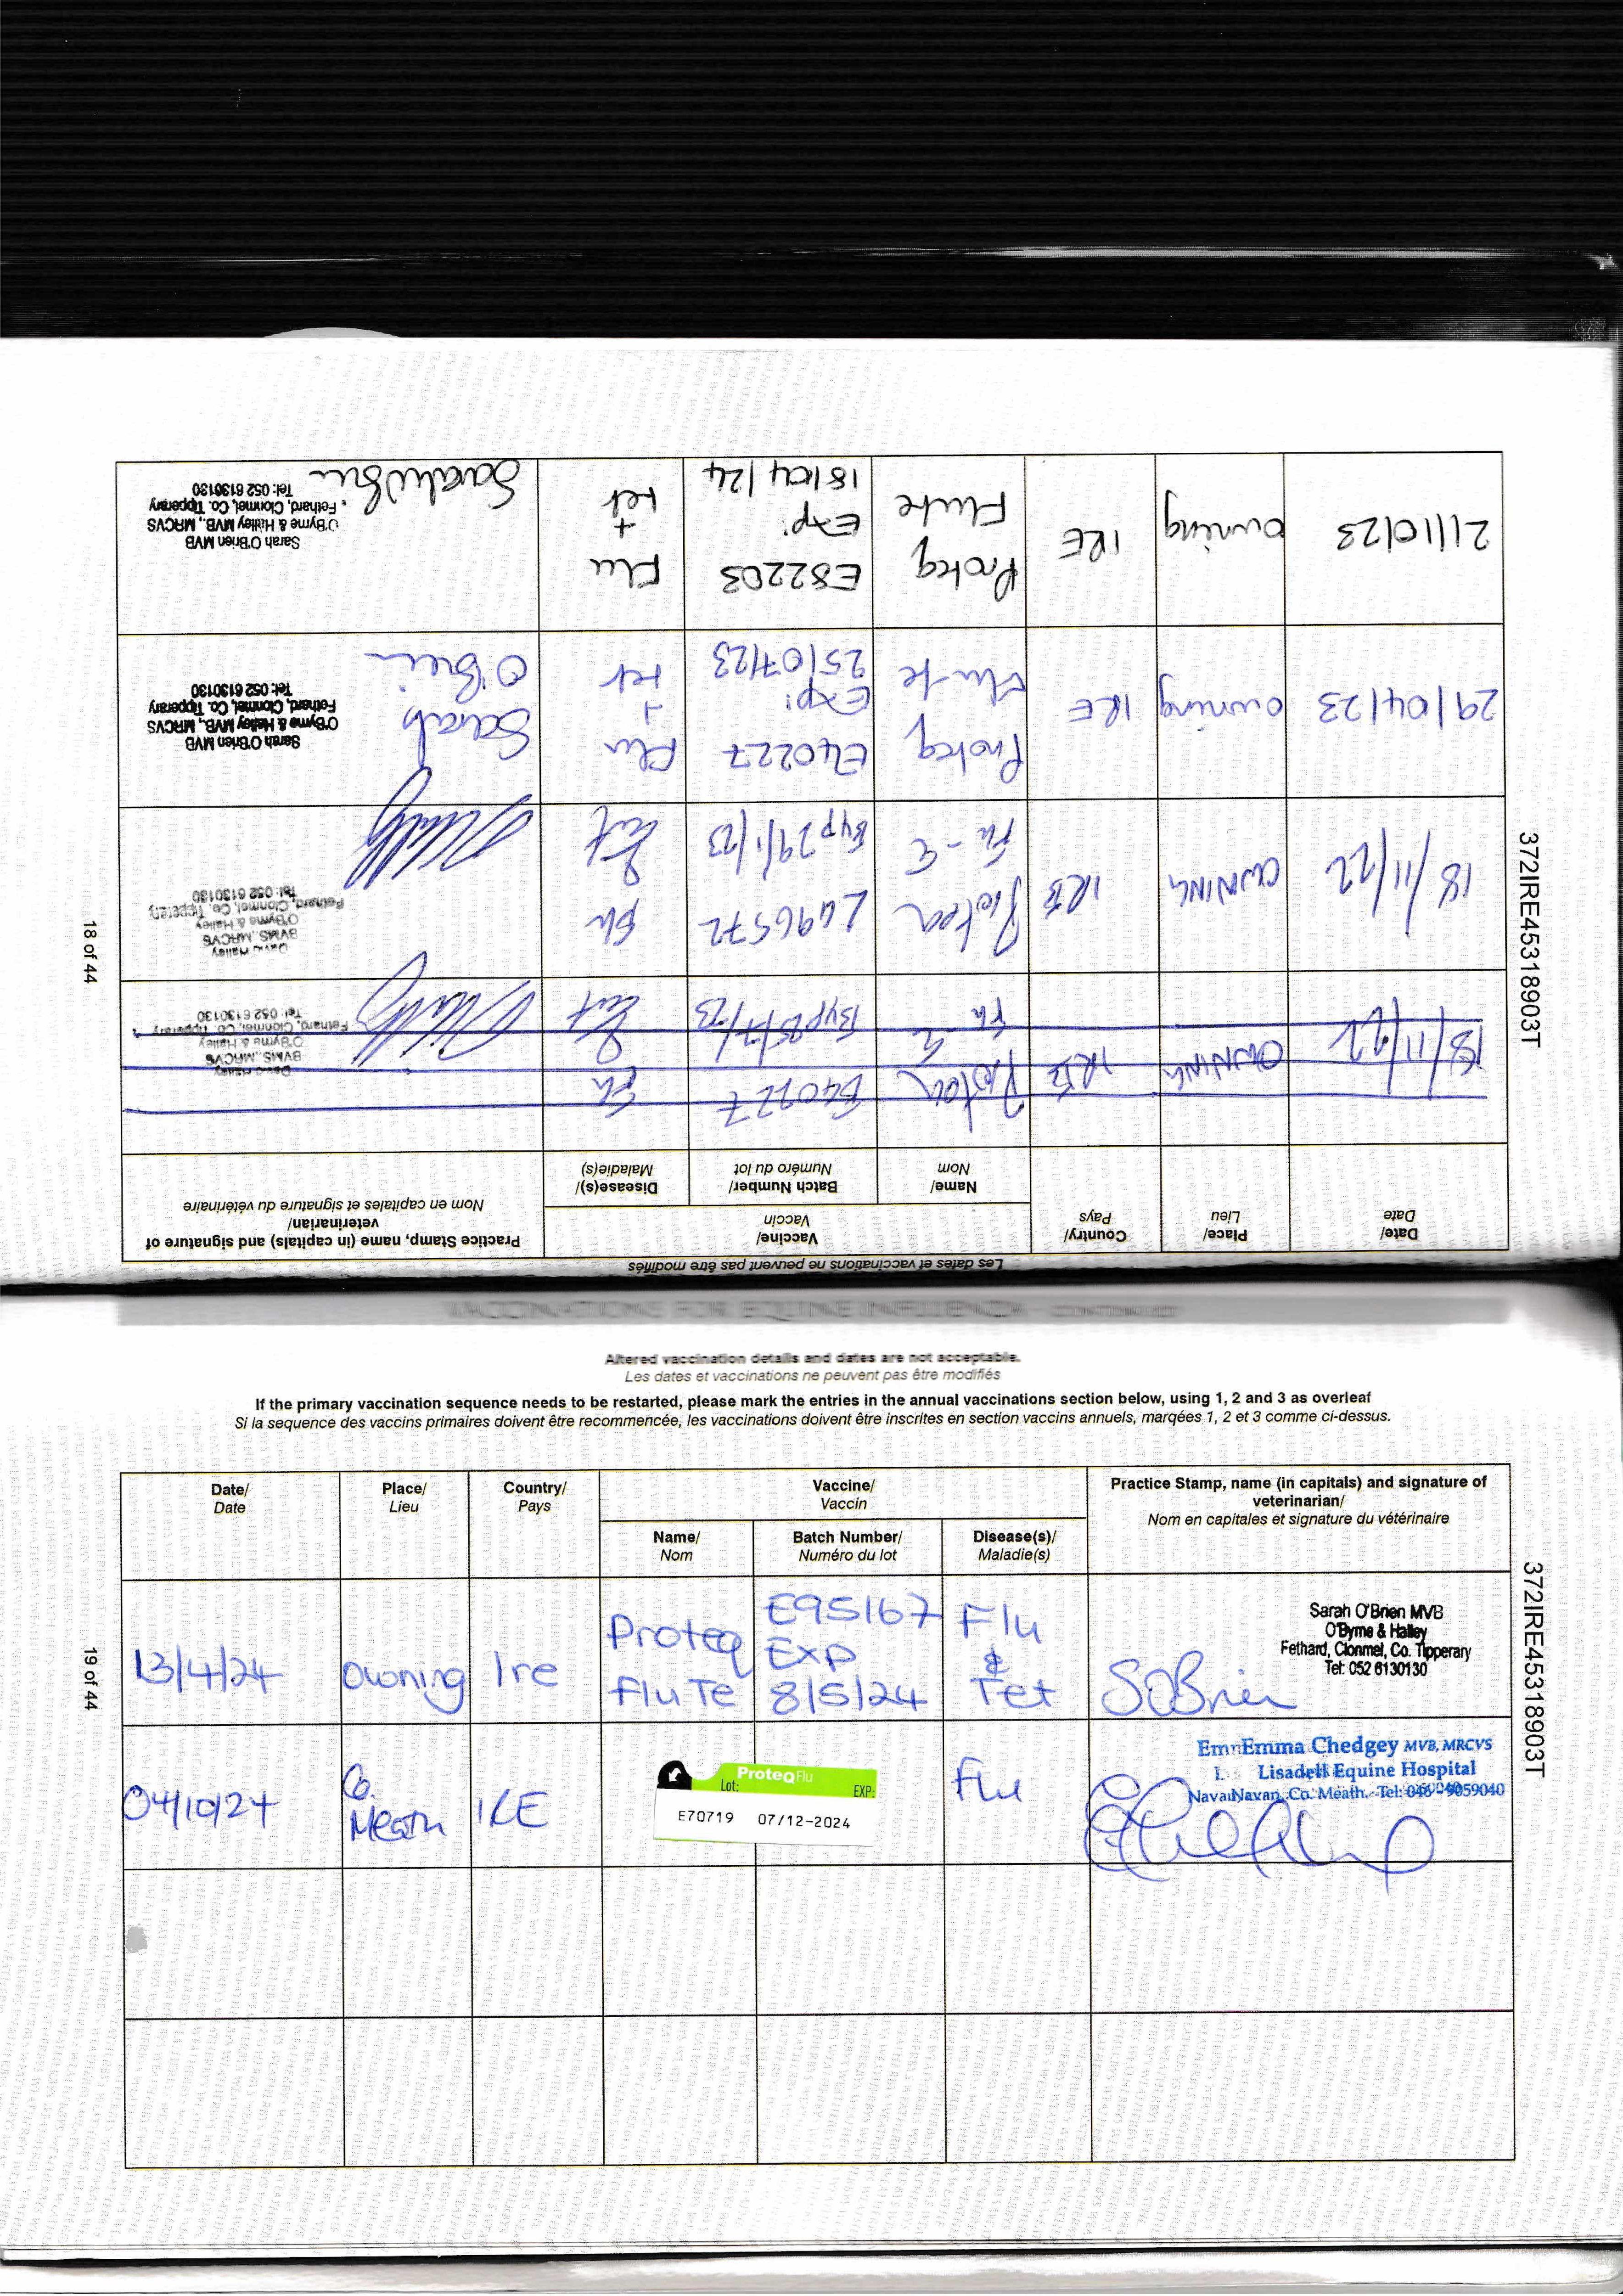 Les dates et vaccinations ne peuvent pas être modifiés
Date/ Date
Place/ Lieu
Country/ Pays
Vaccine/ Vaccin
Name/ Nom
Batch Number/ Numéro du lot
Disease(s)/ Maladie(s)
Practice Stamp, name (in capitals) and signature of
veterinarian/
Nom en capitales et signature du vétérinaire
18/11/22 OWNING IRE E40227 Flu
David Halley
BVMS., MRCVS
O'Byrne & Halley
Fethard, Clonmel, Co. Tipperary
Tel: 052 6130130
18/11/22 OWNING IRE L496572 Flu
Exp 29/1/23
David Halley
BVMS., MRCVS
O'Byrne & Halley
Fethard, Clonmel, Co. Tipperary
Tel: 052 6130130
29/04/23 Owning IRE Proteq Flu te E40227 Exp: 25/07/23 Flu + tet Sarah O'Brien
Sarah O'Brien MVB
O'Byrne & Halley MVB., MRCVS
Fethard, Clonmel, Co. Tipperary
Tel: 052 6130130
21/10/23 Owning IRE Proteq Flute E82203 Exp: 18/04/24 Flu + tet
Sarah O'Brien MVB
O'Byrne & Halley MVB., MRCVS
Fethard, Clonmel, Co. Tipperary
Tel: 052 6130130
372IRE45318903T
18 of 44
VACCINATIONS FOR EQUINE INFLUENZA - CONTINUED
Altered vaccination details and dates are not acceptable.
Les dates et vaccinations ne peuvent pas être modifiés
If the primary vaccination sequence needs to be restarted, please mark the entries in the annual vaccinations section below, using 1, 2 and 3 as overleaf
Si la sequence des vaccins primaires doivent être recommencée, les vaccinations doivent être inscrites en section vaccins annuels, marqées 1, 2 et 3 comme ci-dessus.
Date/ Date
Place/ Lieu
Country/ Pays
Vaccine/ Vaccin
Name/ Nom
Batch Number/ Numéro du lot
Disease(s)/ Maladie(s)
Practice Stamp, name (in capitals) and signature of
veterinarian/
Nom en capitales et signature du vétérinaire
13/4/24 Owning Ire Proteq Flu Te E95167 Exp 8/5/24 Flu & Tet SOBrien
Sarah O'Brien MVB
O'Byrne & Halley
Fethard, Clonmel, Co. Tipperary
Tel: 052 6130130
04/10/24 Co. Meath IRE
ProteqFlu
Lot: EXP:
E70719 07/12-2024
Flu
Emma Chedgey MVB, MRCVS
Lisadell Equine Hospital
Navan, Co. Meath. Tel: 046-9059040
372IRE45318903T
19 of 44